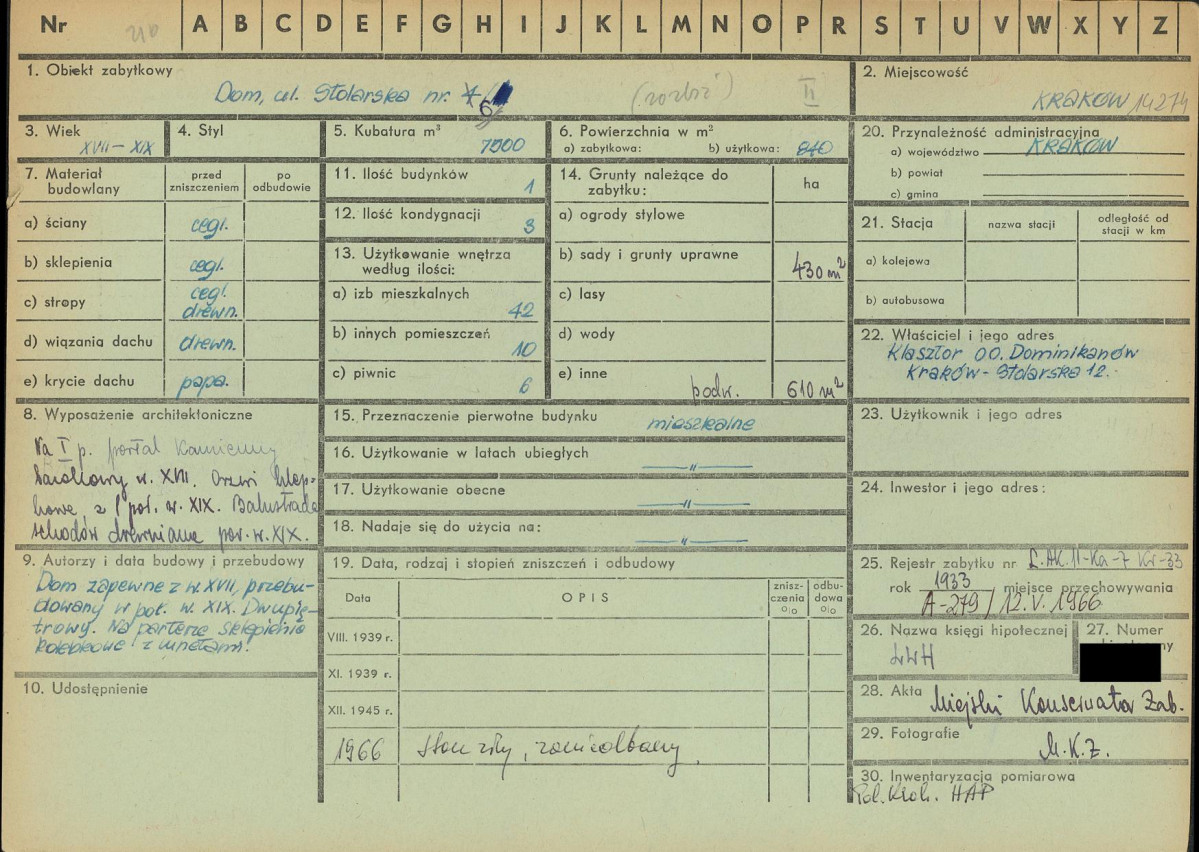 Nr A B C D E F G H I J K L M N O P R S T U V W X Y Z
1. Obiekt zabytkowy
Dom, ul. Stolarska nr. 6
II
2. Miejscowość
KRAKÓW, 14274
3. Wiek
XVII – XIX
4. Styl
5. Kubatura m³
7500
6. Powierzchnia w m²
a) zabytkowa: b) użytkowa: 840
20. Przynależność administracyjna
a) województwo KRAKÓW
b) powiat
c) gmina
7. Materiał budowlany
przed zniszczeniem
po odbudowie
a) ściany cegl.
b) sklepienia cegl.
c) stropy cegl. drewn.
d) wiązania dachu drewn.
e) krycie dachu papa.
11. Ilość budynków 1
12. Ilość kondygnacji 3
13. Użytkowanie wnętrza
według ilości:
a) izb mieszkalnych 42
b) innych pomieszczeń 10
c) piwnic 6
14. Grunty należące do
zabytku: ha
a) ogrody stylowe
b) sady i grunty uprawne 430 m²
c) lasy
d) wody
e) inne podw. 610 m²
21. Stacja nazwa stacji odległość od
stacji w km
a) kolejowa
b) autobusowa
22. Właściciel i jego adres
Klasztor OO. Dominikanów
Kraków - Stolarska 12.
8. Wyposażenie architektoniczne
Na I p. portal kamienny
barokowy w. XVII. Drzwi sklep-
kowe z I poł. w. XIX. Balustrada
schodów drewniana poł. w. XIX.
15. Przeznaczenie pierwotne budynku mieszkalne
16. Użytkowanie w latach ubiegłych — " —
17. Użytkowanie obecne — " —
18. Nadaje się do użycia na: — " —
23. Użytkownik i jego adres
24. Inwestor i jego adres:
9. Autorzy i data budowy i przebudowy
Dom zapewne z w. XVII, przebu-
dowany w poł. w. XIX. Dwupię-
trowy. Na parterze sklepienia
kolebkowe z lunetami.
10. Udostępnienie
19. Data, rodzaj i stopień zniszczeń i odbudowy
Data OPIS znisz-
czenia
%
odbu-
dowa
%
VIII. 1939 r.
XI. 1939 r.
XII. 1945 r.
1966 stan zły, zaniedbany.
25. Rejestr zabytku nr L.AK.11-Ka-7 Kr-33
rok 1933 miejsce przechowywania
A-279 / 12. V. 1966
26. Nazwa księgi hipotecznej
LWH
27. Numer
28. Akta Miejski Konserwator Zab.
29. Fotografie
M.K.Z.
30. Inwentaryzacja pomiarowa
HAP